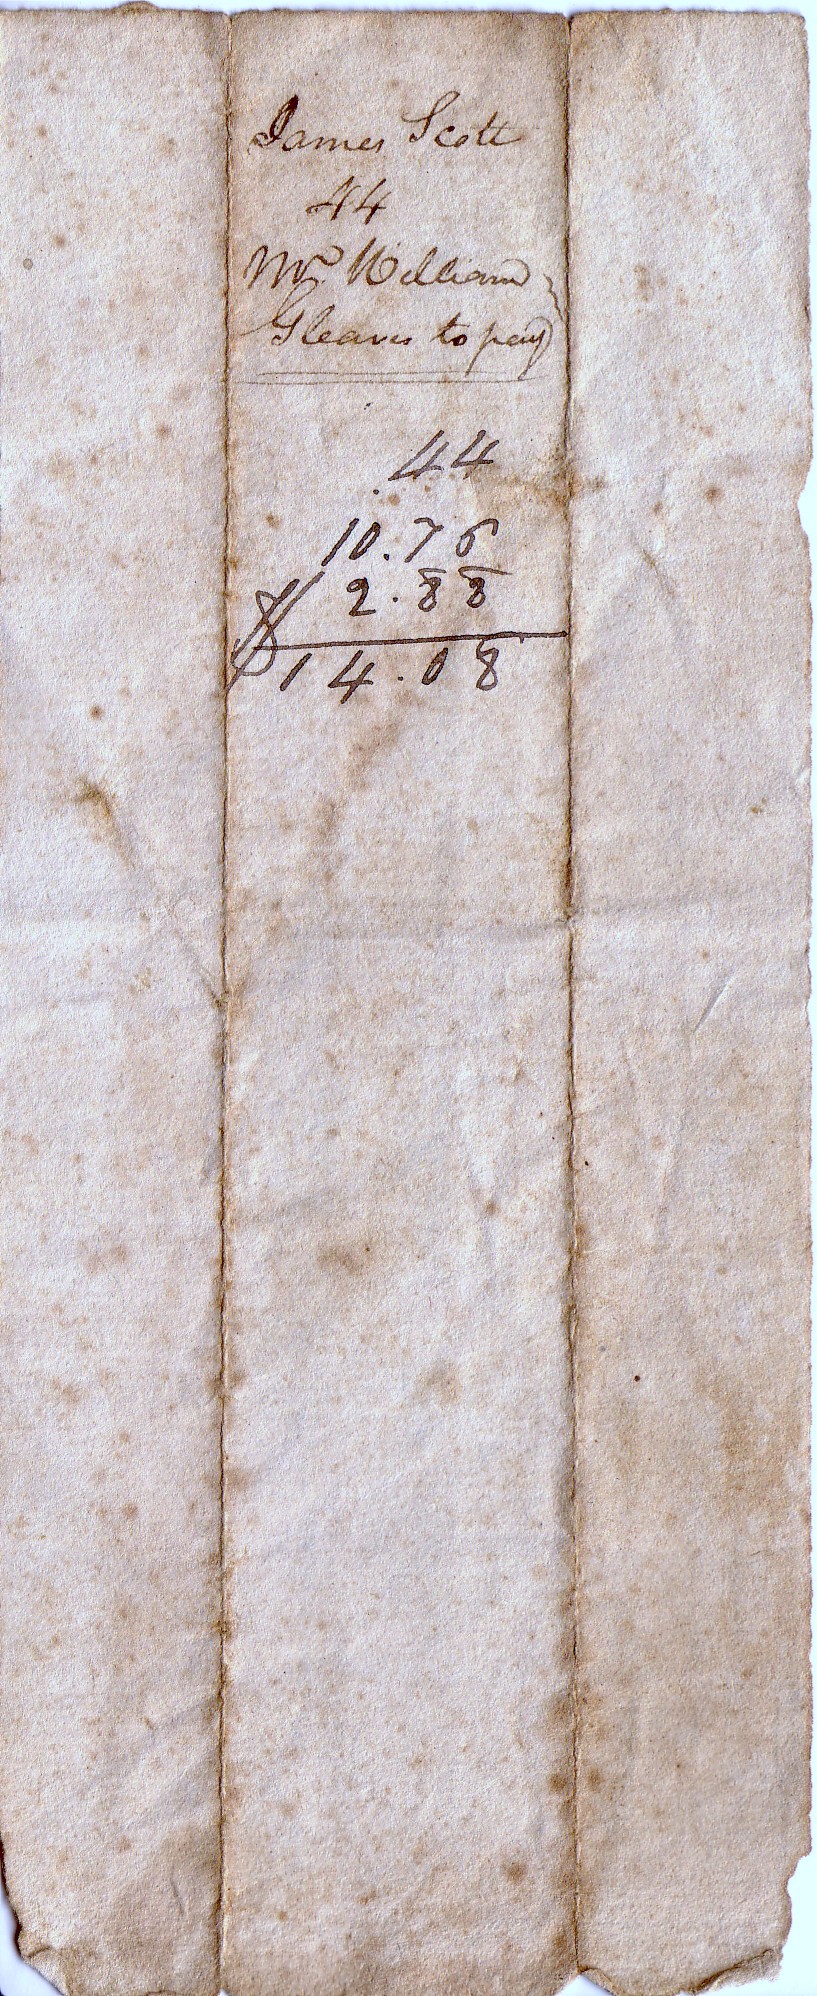 James Scott
44
Mr William
Gleaves to pay
.44
10.76
2.88
$14.08